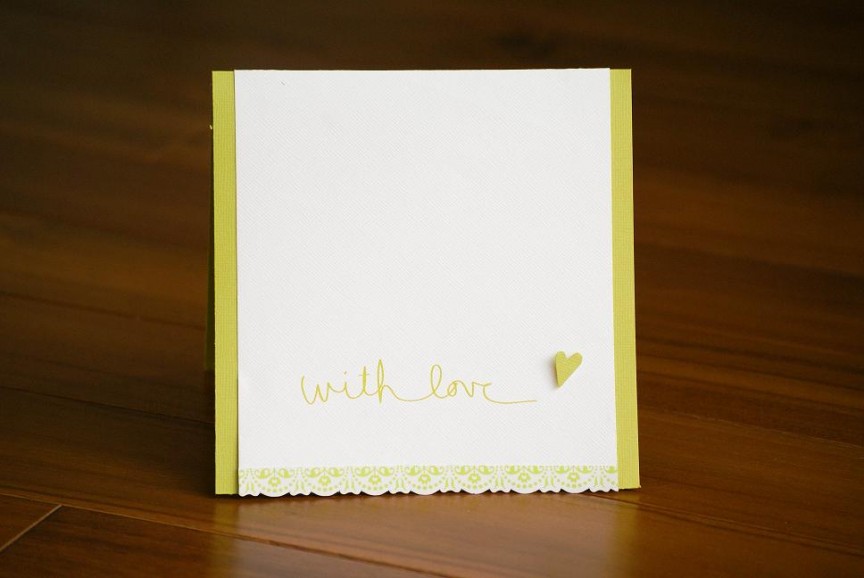 with love